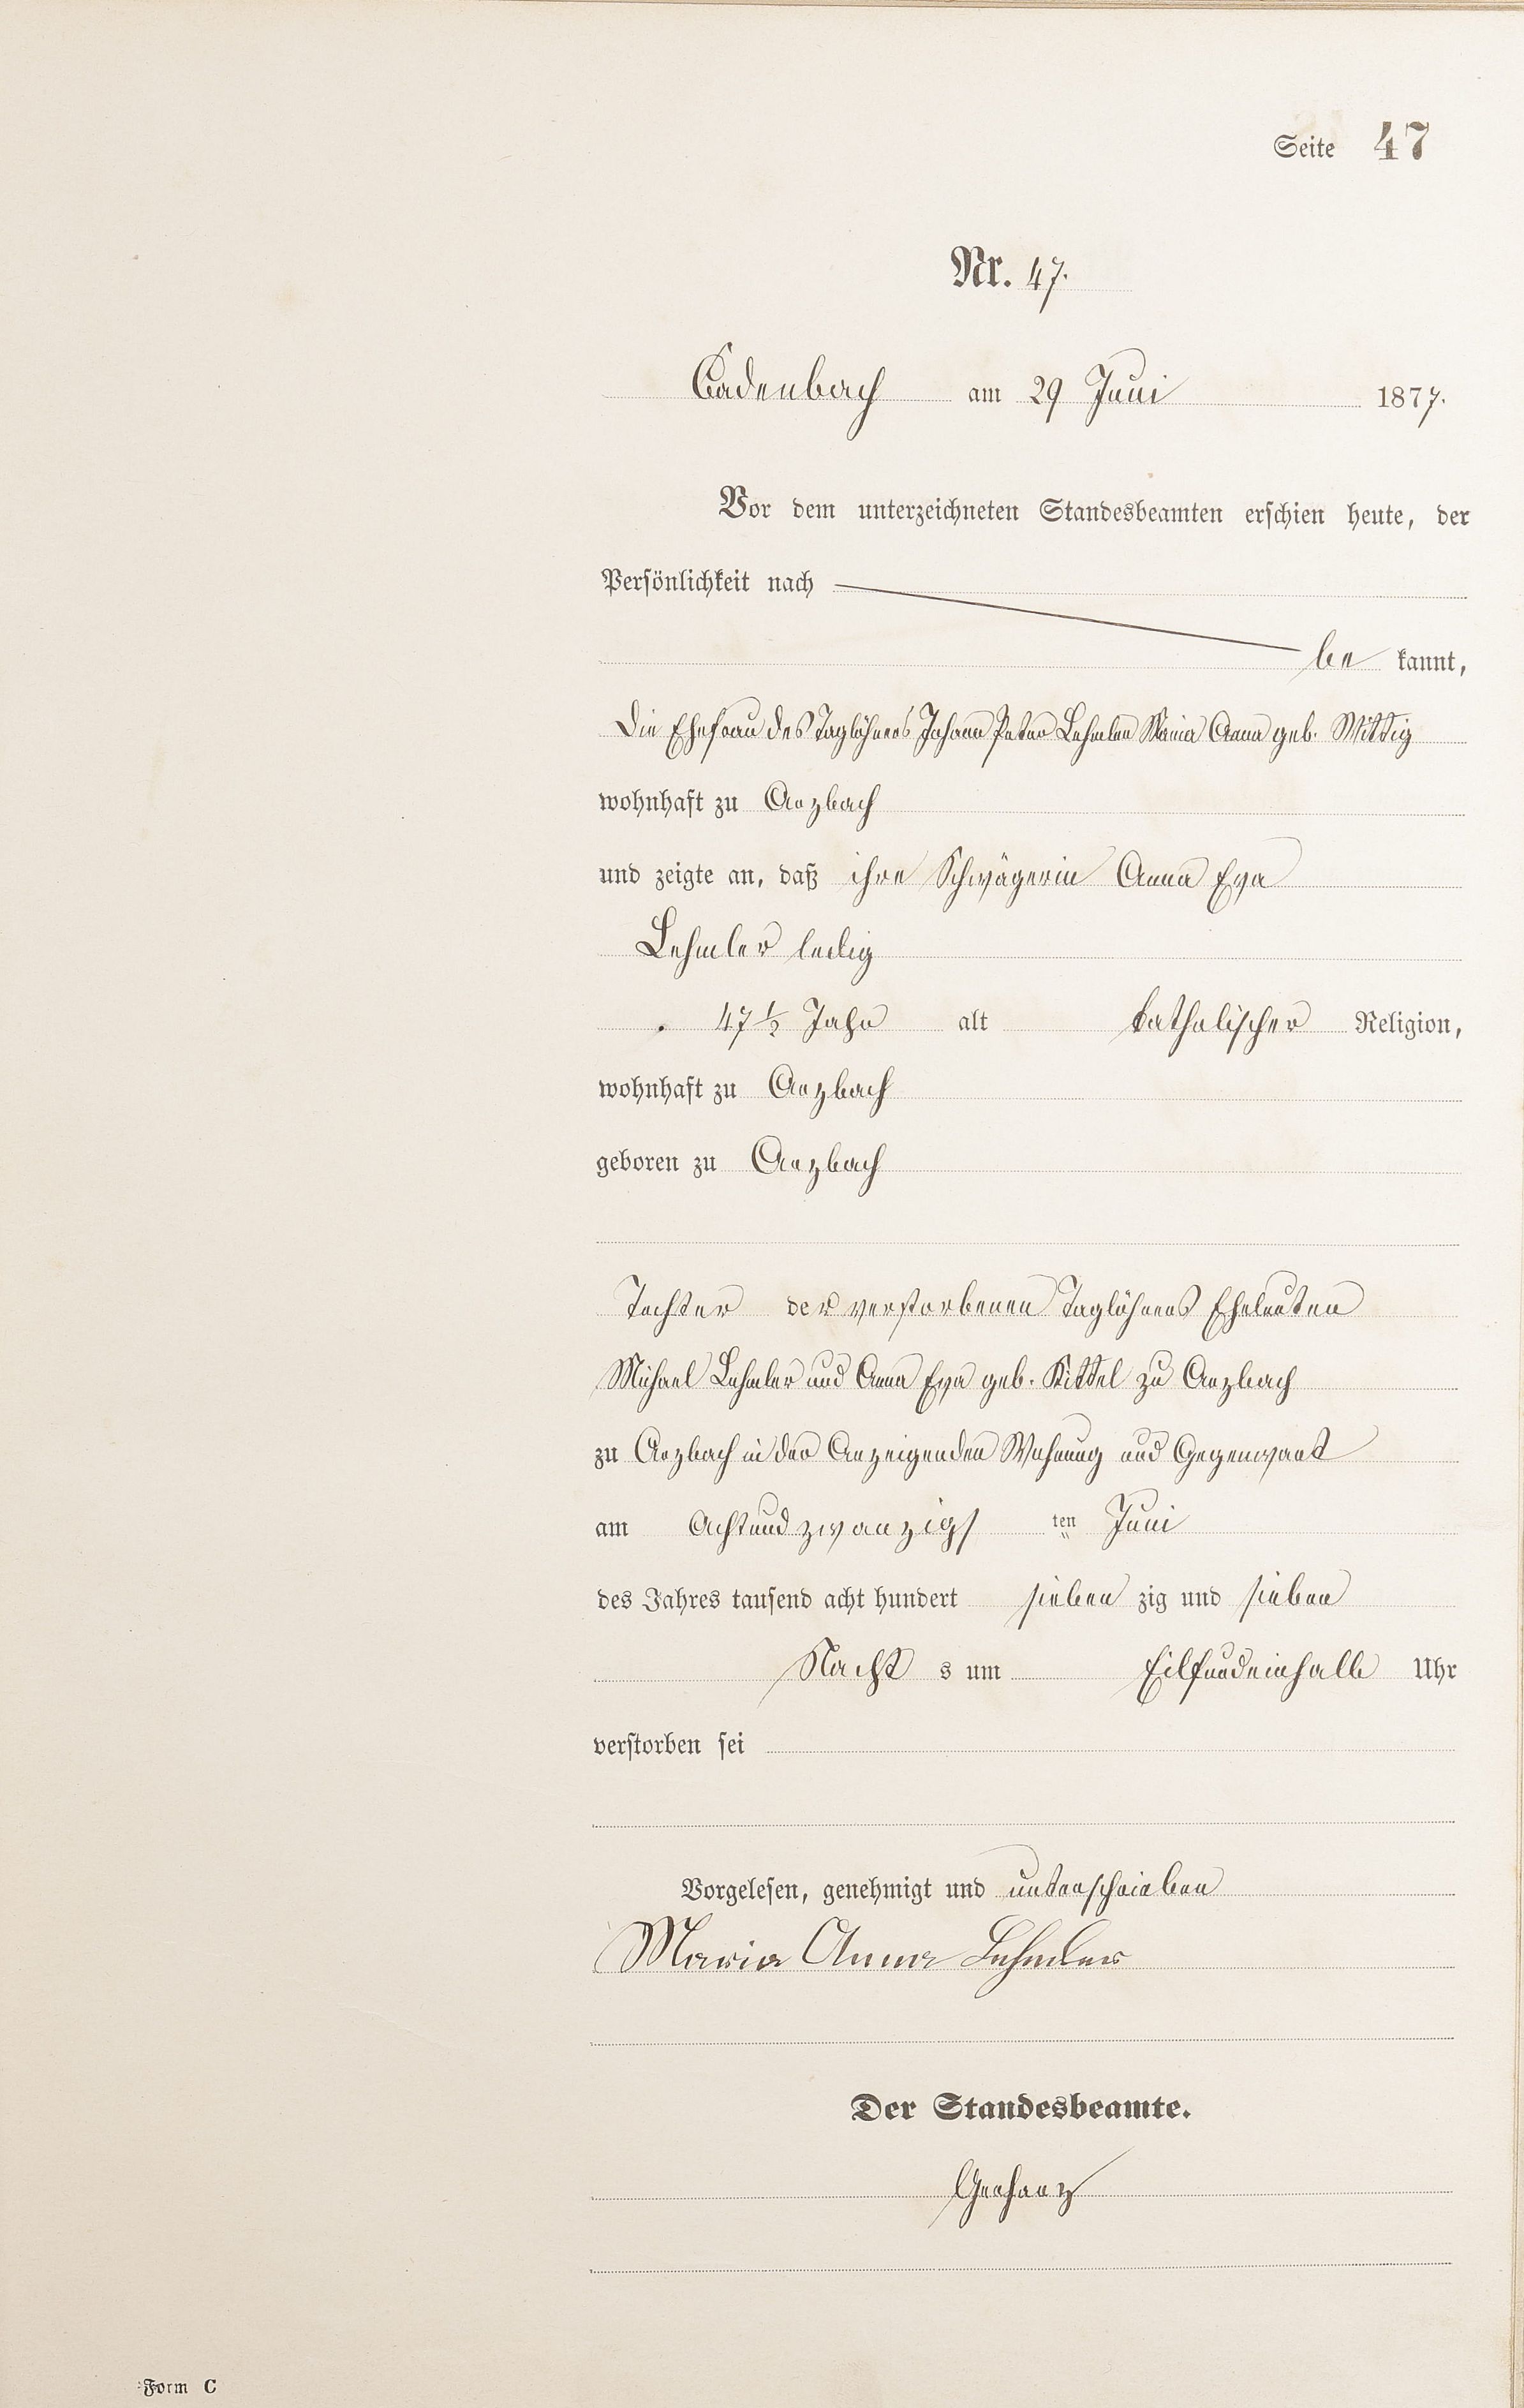 Seite 47
Nr. 47.
Cadenbach am 29 Juni 1877.
Vor dem unterzeichneten Standesbeamten erschien heute, der
Persönlichkeit nach
be kannt,
die Ehefrau des Taglöhners Johann Peter Lehmler Maria Anna geb. Wittig
wohnhaft zu Arzbach
und zeigte an, daß ihre Schwägerin Anna Eva
Lehmler ledig
47 ½ Jahr alt katholischer Religion,
wohnhaft zu Arzbach
geboren zu Arzbach
Tochter der verstorbenen Taglöhners Eheleuten
Michael Lehmler und Anna Eva geb. Kittel zu Arzbach
zu Arzbach in der Anzeigenden Wohnung und Gegenwart
am Achtundzwanzigs ten Juni
des Jahres tausend acht hundert sieben zig und sieben
Nacht s um Eilfundeinhalb Uhr
verstorben sei
Vorgelesen, genehmigt und unterschrieben
Maria Anna Lehmler
Der Standesbeamte.
Gerharz
Form C